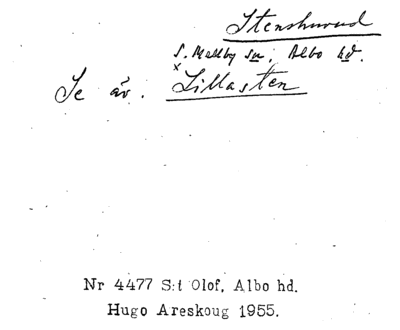 Stenshuvud
S. Mellby sn, Albo hd.
Se äv. x Lillasten
Nr 4477 S:t Olof, Albo hd.
Hugo Areskoug 1955.